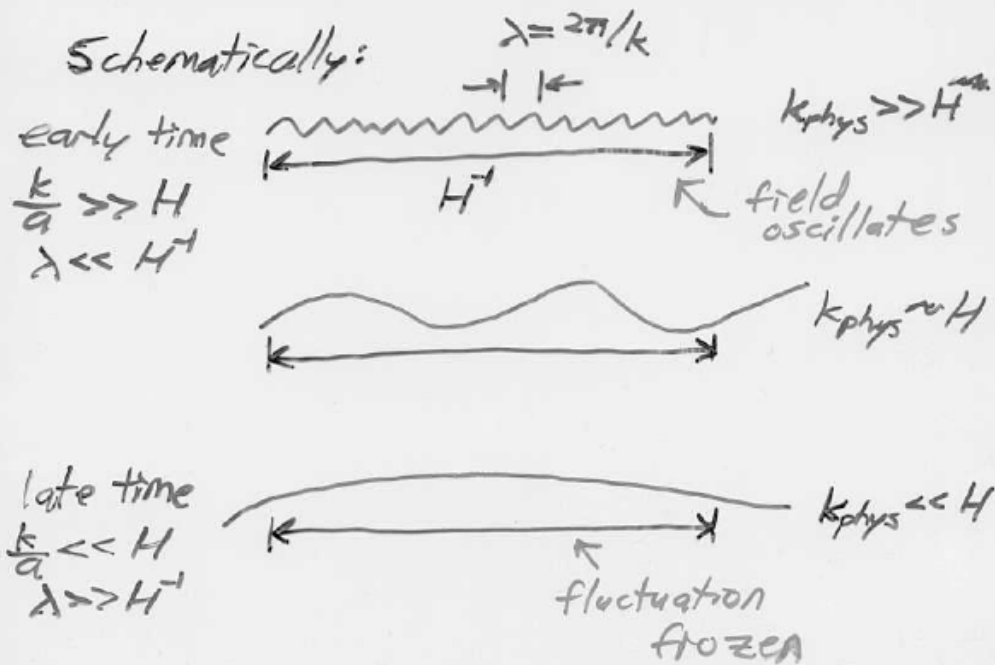 Schematically:
λ = 2π/k
early time
k/a >> H
λ << H⁻¹
k_phys >> H
H⁻¹
field
oscillates
k_phys ~ H
late time
k/a << H
λ >> H⁻¹
k_phys << H
fluctuation
frozen